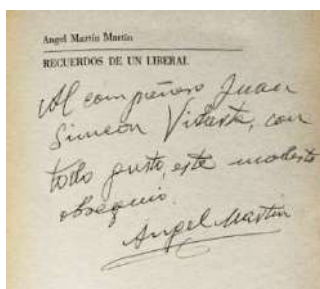 Angel Martín Martín
RECUERDOS DE UN LIBERAL
Al compañero Juan
Simeón Vidarte, con
todo gusto, este modesto
obsequio.
Angel Martin